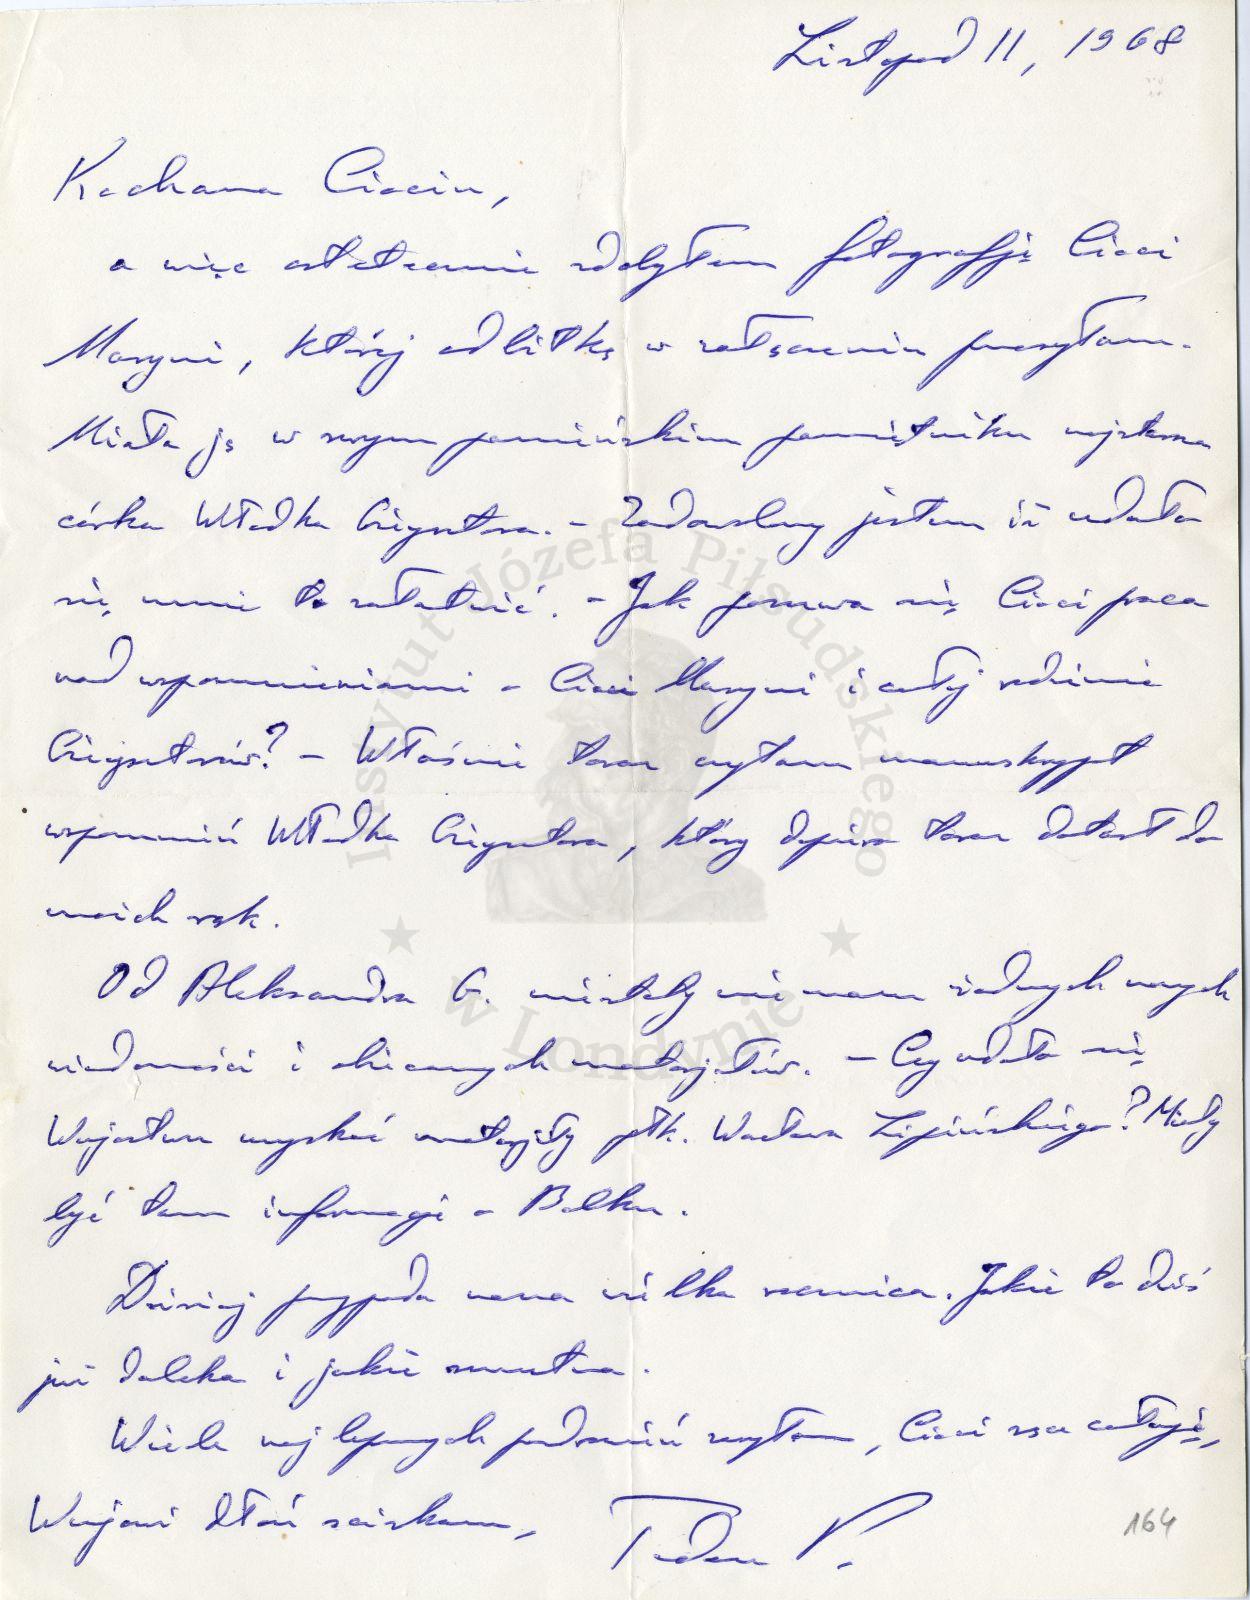 Listopad 11, 1968
Kochana Ciociu,
a więc ostatecznie zdobyłem fotografję Cioci
Maryni, której odbitkę w załączeniu przesyłam.
Miała ją w swym panieńskim pamiętniku najstarsza
córka Władka Giejsztora. – Zadowolony jestem iż udało
się mnie to załatwić. – Jak posuwa się Cioci praca
nad wspomnieniami o Cioci Maryni i całej rodzinie
Giejsztorów? – Właśnie teraz czytam manuskrypt
wspomnień Władka Giejsztora, który dopiero teraz dotarł do
moich rąk.
Od Aleksandra G. niestety nie mam żadnych nowych
wiadomości i obiecanych materjałów. – Czy udało się
Wujostwu uzyskać materjały płk. Wacława Lipińskiego? Miały
być tam informacje o Bolku.
Dzisiaj przypada nasza wielka rocznica. Jakże to dziś
już daleka i jakże smutna.
Wiele najlepszych pozdrowień zasyłam, Cioci rączki całuję,
Wujowi dłoń ściskam,
Tadeusz P.
164
Instytut Józefa Piłsudskiego
w Londynie